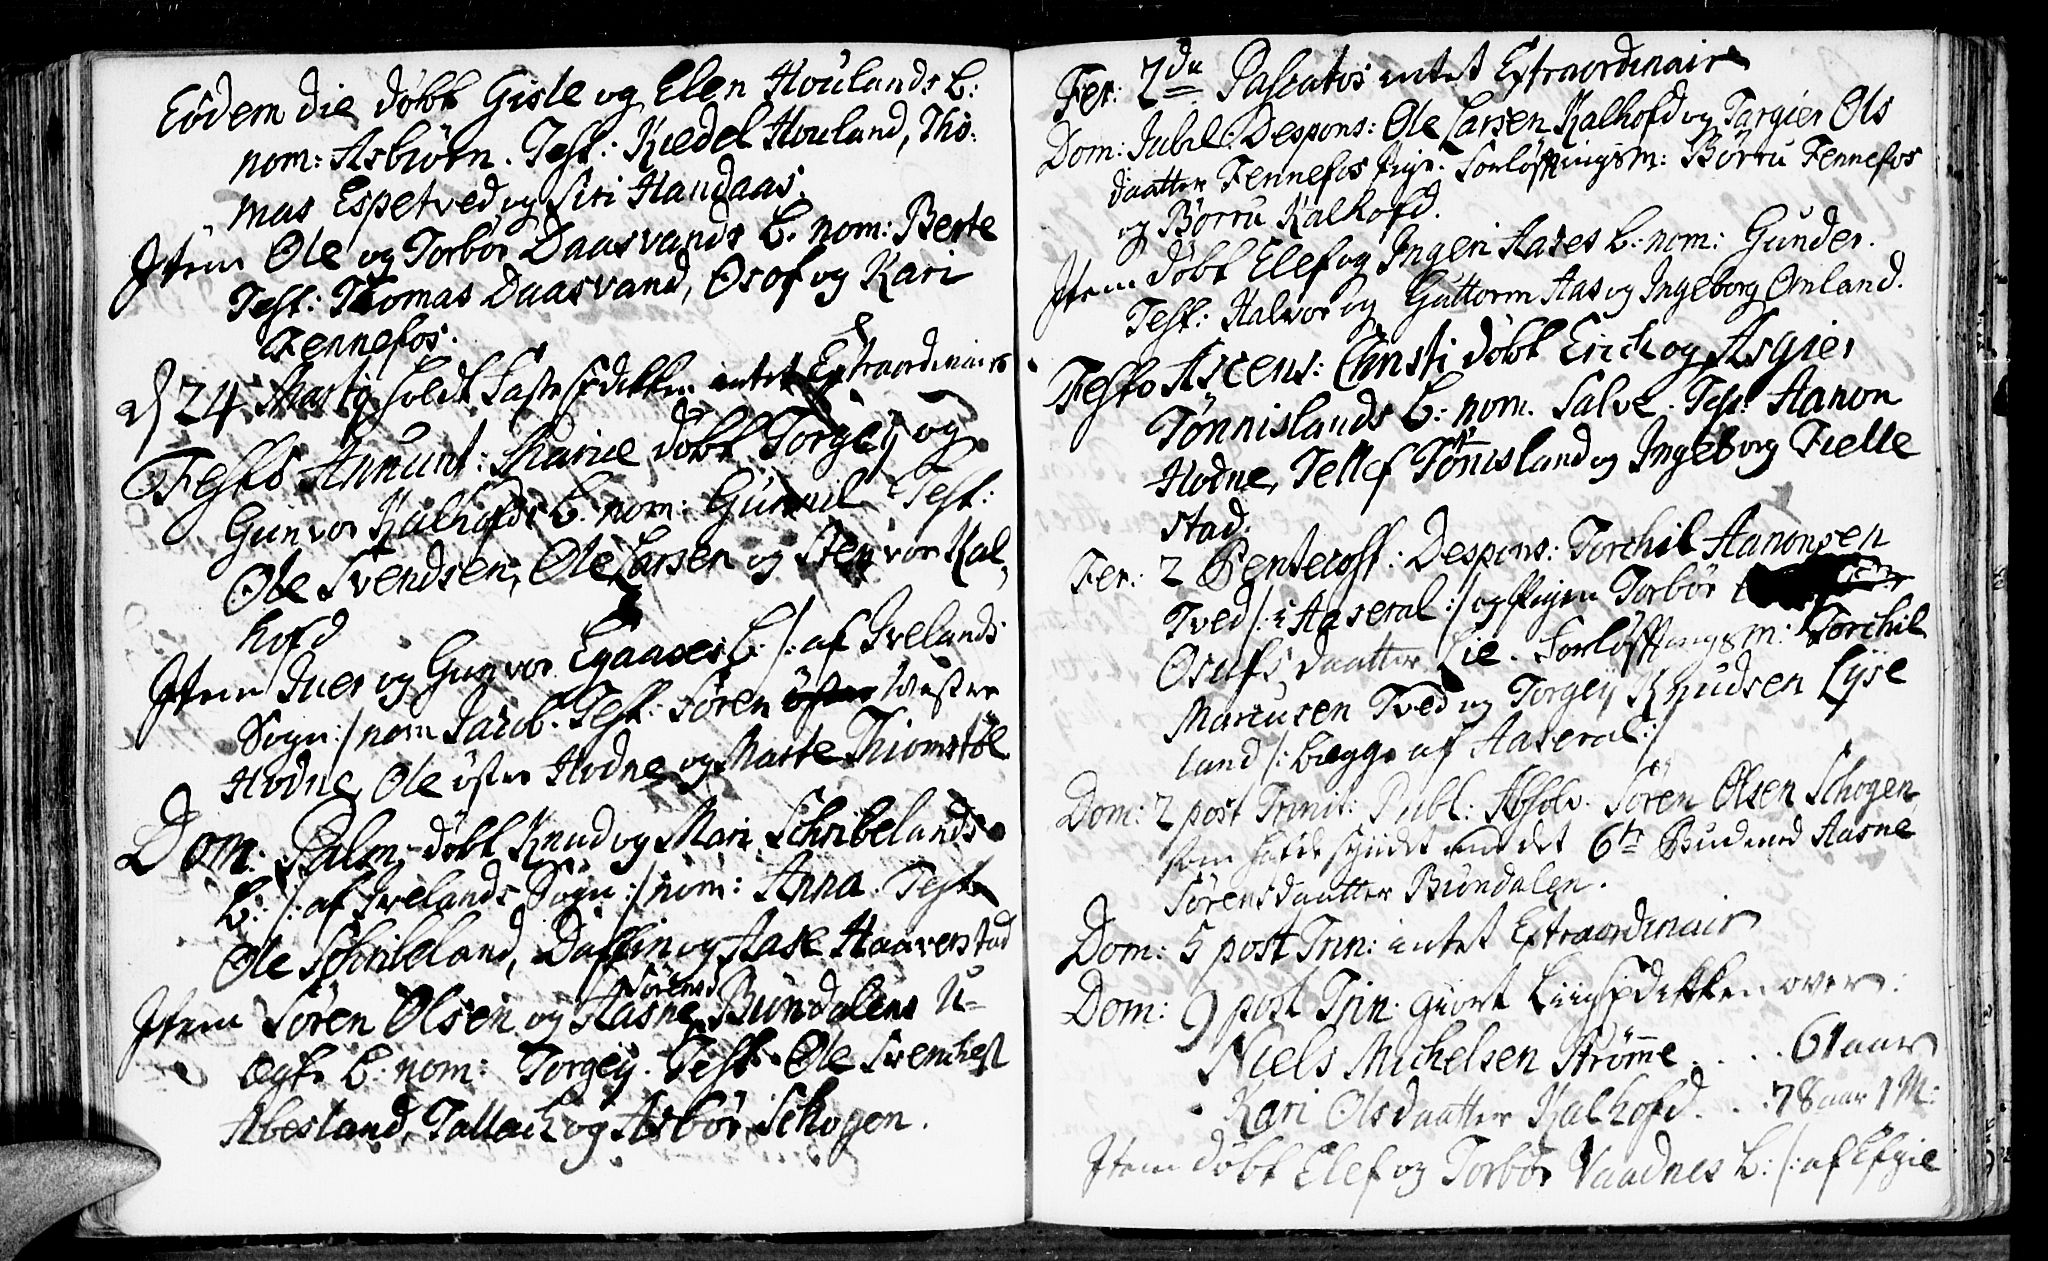 Eôdem die döbt Gisle og Elen Houlands b:
nom: Asbiörn. Test: Kiedel Houland, Tho:
mas Espetved og Siri Handaas.
Item Ole og Torbor Daasvands b. nom: Berte
Test: Thomas Daasvand, Osof og Kari
Fennefos.
d 24 Martij holdt Faste Prædiken intet Extraordinairt
Festo Annunt: Mariæ döbt Torgey og
Gunvor Kalhofds b. nom: Gunnil Test:
Ole Svendsen, Ole Larsen og Stenvor Kal-
hofd
Item Iver og Gunvor Egaases b: /: af Ivelands
Sogn :/ nom Jacob. Test: Sören Westre
Hodne, Ole öster Hodne og Marte Thiomstöl
Dom: Palm, döbt Knud og Mari Schribelands
b: /: af Ivelands Sogn :/ nom: Anna. Test
Ole Schribeland, Daffin og Aase Haaverstad
Item Sören Olsen og Aasne Sörensd Bundalens U-
ægte b: nom: Torgey. Test. Ole Svenchest
Abesland, Tallach og Asbör Schogen.
Fer: 2de Pascatos intet Extraordinair
Dom: Jubil: Despons: Ole Larsen Kalhofd og Targier Ols
daatter Fennefos Pige. Forlöftningsm: Börru Fennefos
og Börru Kalhofd.
Item döbt Elef og Ingeri Aases b: nom: Gunder.
Test: Halvor og Guttorm Aas og Ingeborg Omland.
Festo Ascens: Christi döbt Erich og Asgier
Tönnislands b: nom. Salve. Test: Aanon
Hodne, Tellef Tönnisland og Ingeborg Fielle
stad.
Fer: 2 Pentecost: Despons: Torchil Aanonsen
Tved /: i Aaseral :/ og Pigen Torbör
Osufs daatter Lie. Forlöftningsm: Torchil
Marcusen Tved og Torgey Knudsen Lyse
land /: begge af Aaseral :/
Dom: 2 post Trinit: Publ: Absolv. Sören Olsen Schogen
som hafde syndet imod det 6te Bud med Aasne
Sörensdaatter Bundalen.
Dom: 5 post Trin: intet Extraordinair
Dom: 9 post Trin. giort Liigprædikken over:
Niels Michelsen Strömme . . . . 61 aar
Kari Olsdaatter Kalhofd. . . . 78 aar 1 M:
Item döbt Elef og Torbör Vaadnes b: /: af Efgie